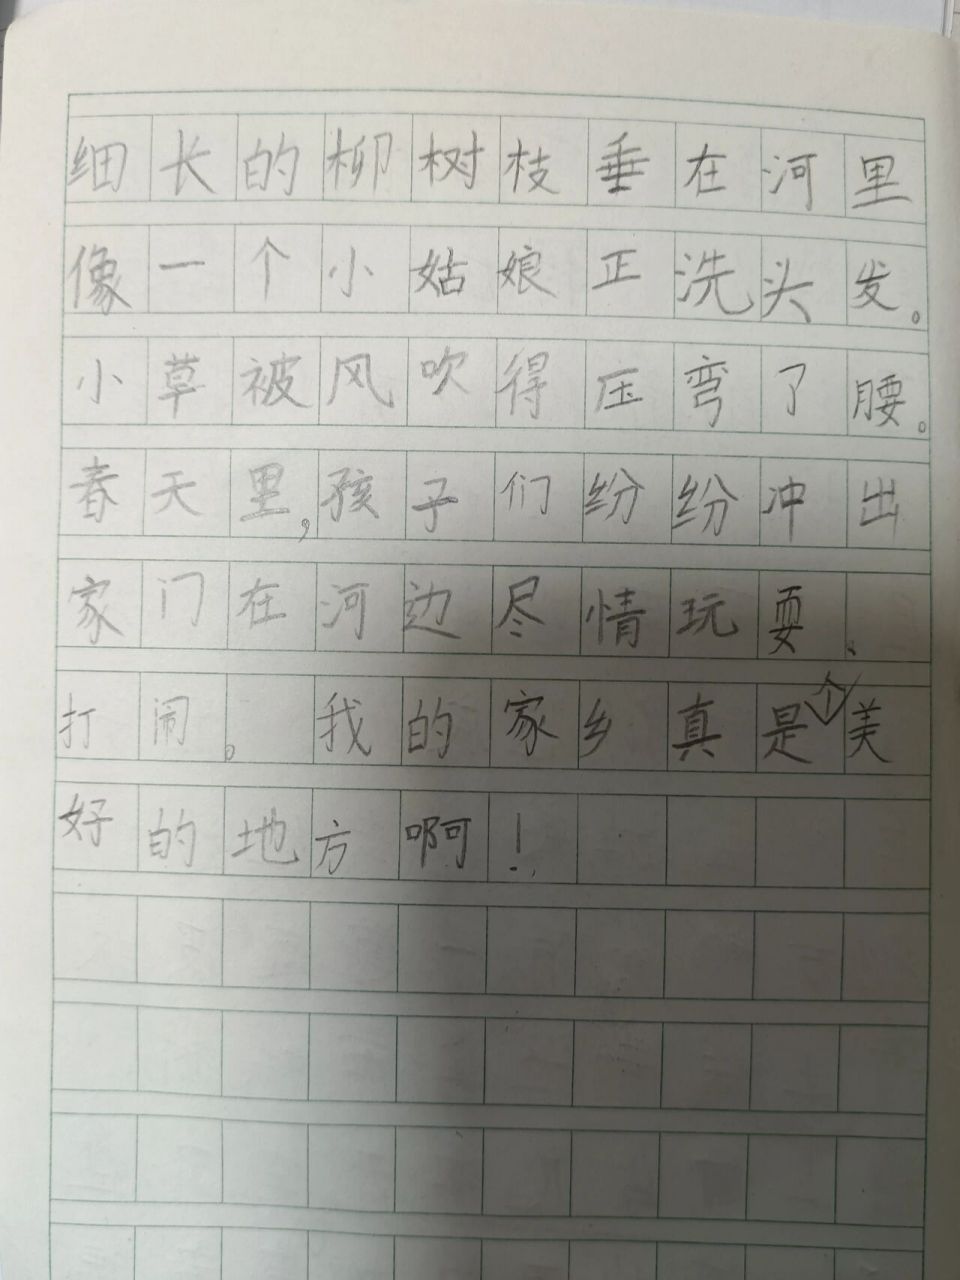 细长的柳树枝垂在河里
像一个小姑娘正洗头发。
小草被风吹得压弯了腰。
春天里,孩子们纷纷冲出
家门在河边尽情玩耍、
打闹。我的家乡真是个美
好的地方啊!